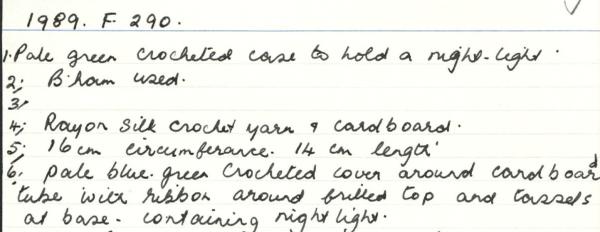 1989. F 290.
1. Pale green crocheted case to hold a night-light.
2; B'ham used.
3;
4; Rayon silk crochet yarn & cardboard.
5; 16cm circumferance. 14 cm length
6. pale blue-green crocheted cover around cardboard
tube with ribbon around frilled top and tassels
at base - containing night light.